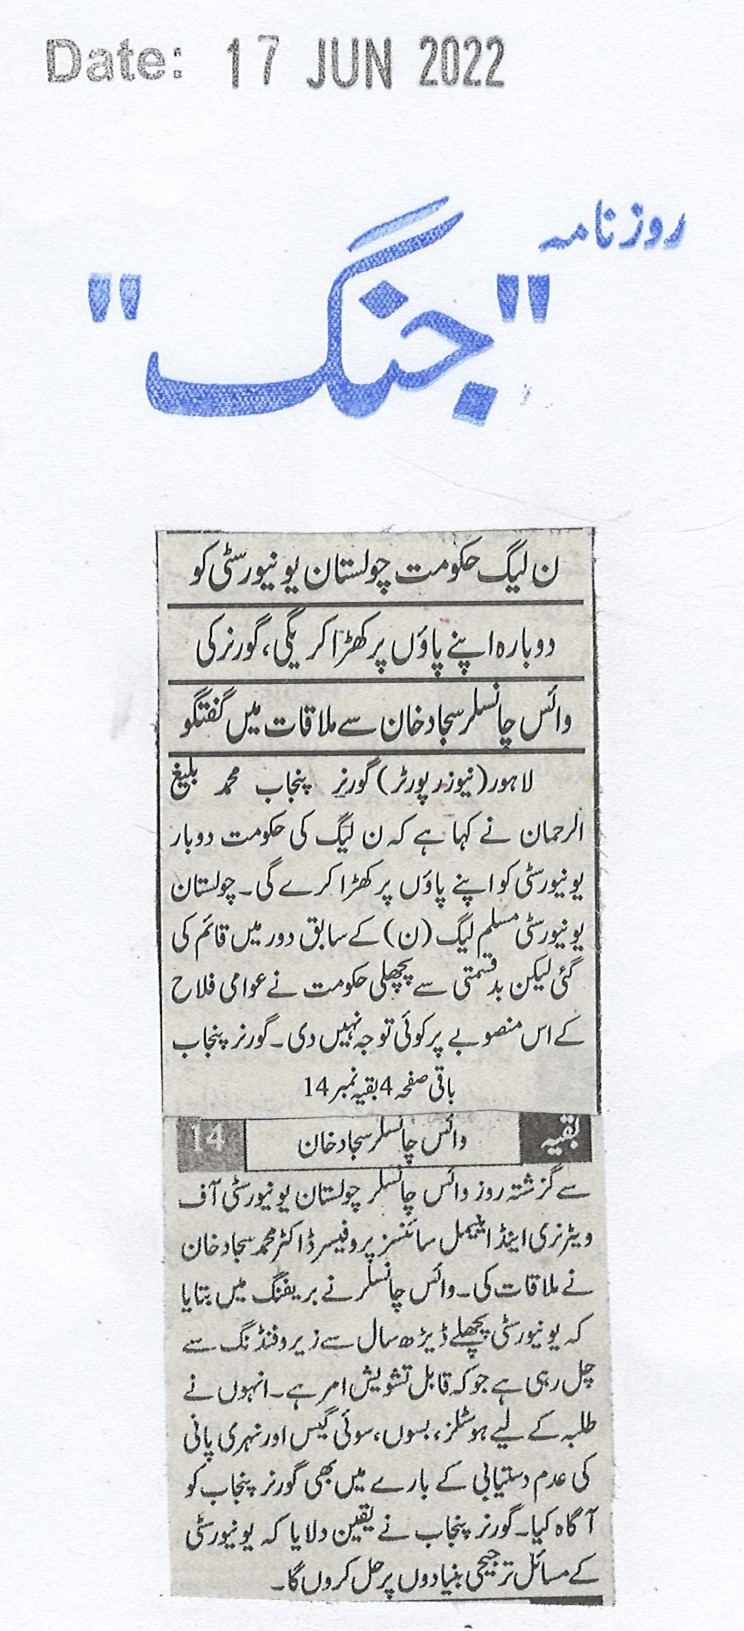 Date: 17 JUN 2022
روزنامہ
"جنگ"
ن لیگ حکومت چولستان یونیورسٹی کو
دوبارہ اپنے پاؤں پر کھڑا کریگی، گورنر کی
وائس چانسلر سجاد خان سے ملاقات میں گفتگو
لاہور (نیوز رپورٹر) گورنر پنجاب محمد بلیغ
الرحمان نے کہا ہے کہ ن لیگ کی حکومت دوبار
یونیورسٹی کو اپنے پاؤں پر کھڑا کرے گی۔ چولستان
یونیورسٹی مسلم لیگ (ن) کے سابق دور میں قائم کی
گئی لیکن بدقسمتی سے پچھلی حکومت نے عوامی فلاح
کے اس منصوبے پر کوئی توجہ نہیں دی۔ گورنر پنجاب
باقی صفحہ 4 بقیہ نمبر 14
بقیہ وائس چانسلر سجاد خان 14
سے گزشتہ روز وائس چانسلر چولستان یونیورسٹی آف
ویٹرنری اینڈ اینیمل سائنسز پروفیسر ڈاکٹر محمد سجاد خان
نے ملاقات کی۔ وائس چانسلر نے بریفنگ میں بتایا
کہ یونیورسٹی پچھلے ڈیڑھ سال سے زیرو فنڈنگ سے
چل رہی ہے جو کہ قابل تشویش امر ہے۔ انہوں نے
طلبہ کے لیے ہوسٹلز، بسوں، سوئی گیس اور نہری پانی
کی عدم دستیابی کے بارے میں بھی گورنر پنجاب کو
آگاہ کیا۔ گورنر پنجاب نے یقین دلایا کہ یونیورسٹی
کے مسائل ترجیحی بنیادوں پر حل کروں گا۔